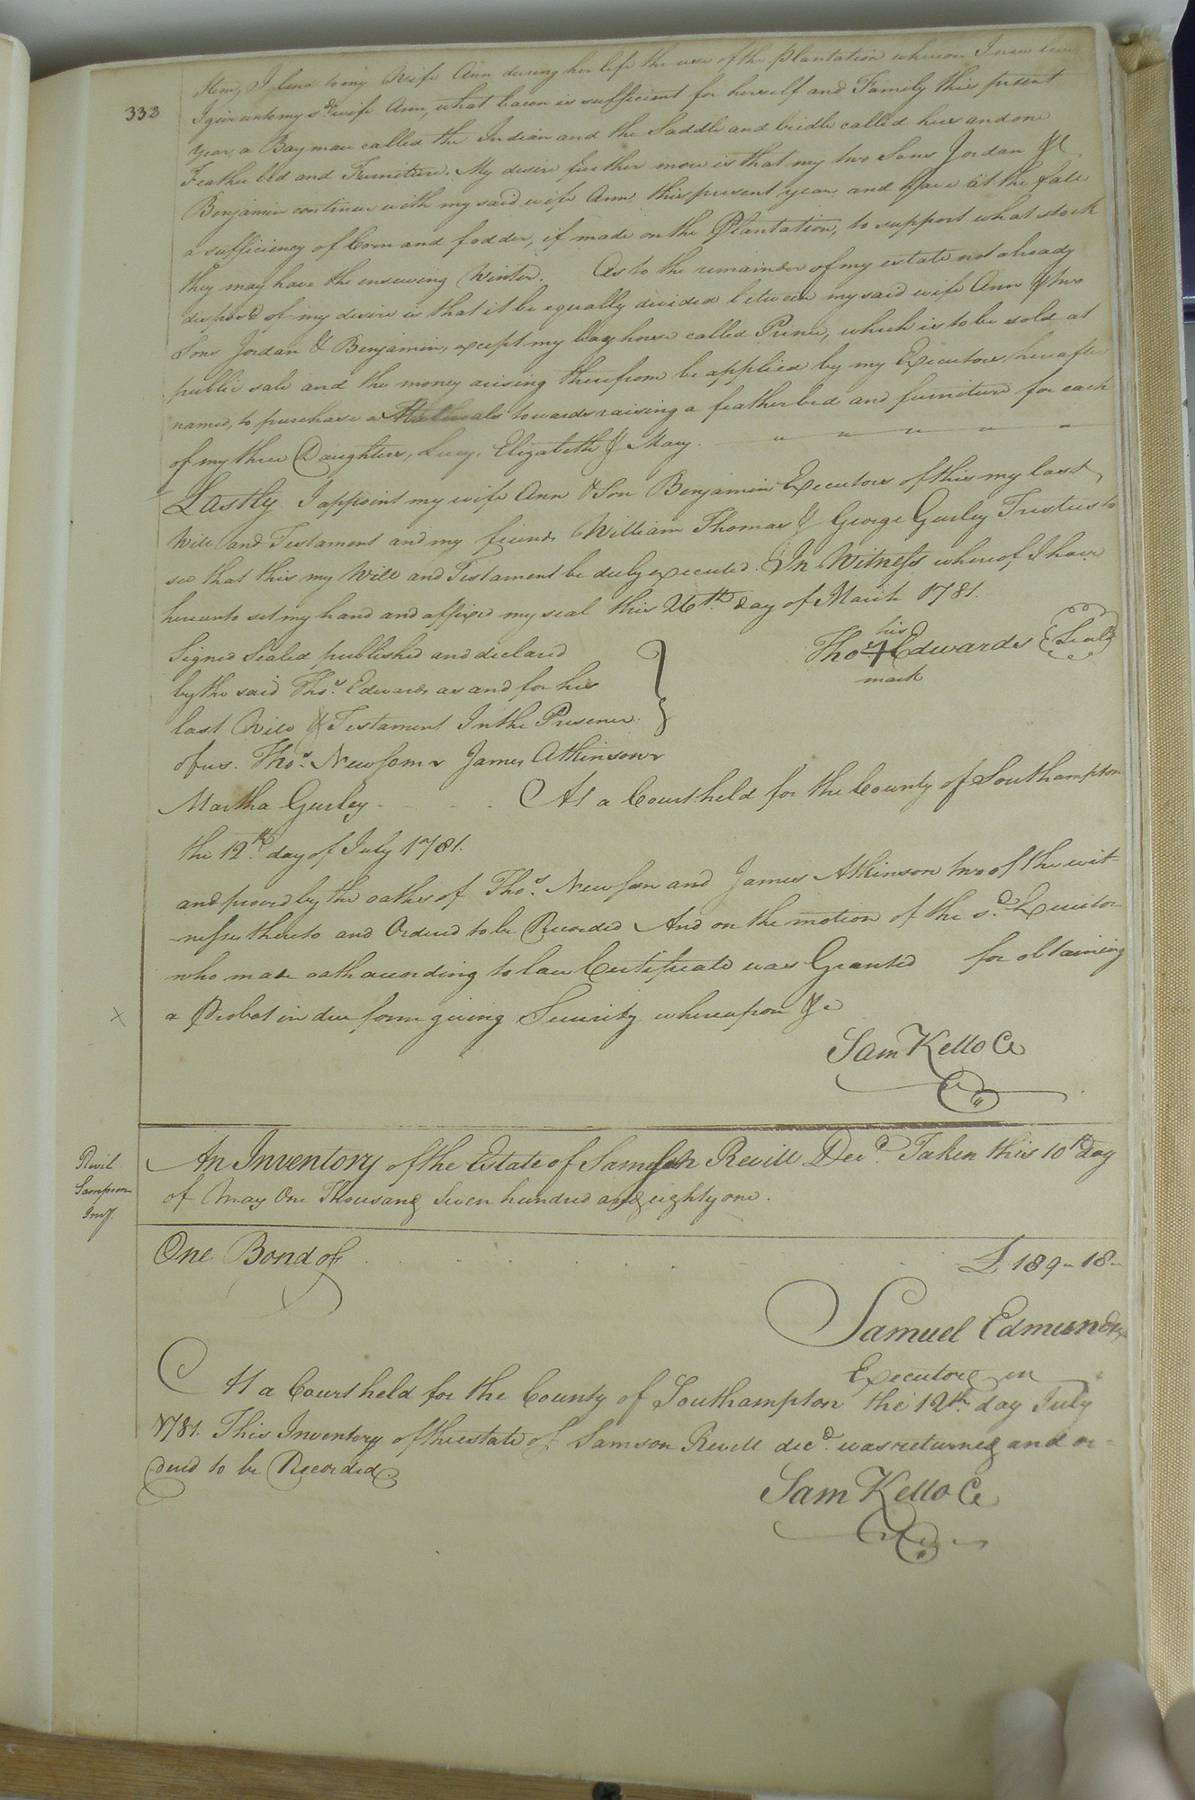 333
Item, I lend to my Wife Ann during her life the use of the Plantation whereon I now live
I give unto my sd. wife Ann, what bacon is sufficient for herself and Family this present
Year, a Bay mare called the Indian and the Saddle and bridle called hers and one
Feather bed and Furniture. My desire further more is that my two Sons Jordan &
Benjamin continue with my said wife Ann this present year and have at the fall
a sufficiency of Corn and fodder, if made on the Plantation, to support what stock
they may have the ensuing Winter. As to the remainder of my estate not already
disposd of my desire is that it be equally divided between my said wife Ann & two
Sons Jordan & Benjamin, except my bay horse called Prince, which is to be sold at
public sale and the money arising therefrom be applied by my Executors, hereafter
named, to purchase materials towards raising a feather bed and furniture for each
of my three Daughters, Lucy, Elizabeth & Mary.
Lastly I appoint my wife Ann & Son Benjamin Executors of this my last
Will and Testament and my friends William Thomas & George Gurley Trustees to
see that this my Will and Testament be duly executed. In Witness whereof I have
hereunto set my hand and affixed my seal this 26th day of March 1781.
Signed Sealed published and declared
his
Thos Edwards Seal
mark
by the said Thos. Edwards as and for his
last Will & Testament In the Presence
of us. Thos. Newsom James Atkinson
Martha Gurley. At a Court held for the County of Southampton
the 12th day of July 1781.
and proved by the oaths of Thos. Newsom and James Atkinson two of the wit-
-nesses thereto and Ordered to be Recorded And on the motion of the sd. Executor
who made oath according to law Certificate was Granted for obtaining
a Probat in due form giving Security whereupon &c
x
Sam Kello Ce
Revil
Sampson
Invy
An Inventory of the Estate of Samson Revill Decd. Taken this 10th day
of May One Thousand Seven hundred and eighty one.
One Bond of £ 189 - 18 -
Samuel Edmunds
Executor
At a Court held for the County of Southampton the 12th. day July
1781. This Inventory of the estate of Samson Revill decd. was returned and or-
dered to be Recorded
Sam Kello Ce